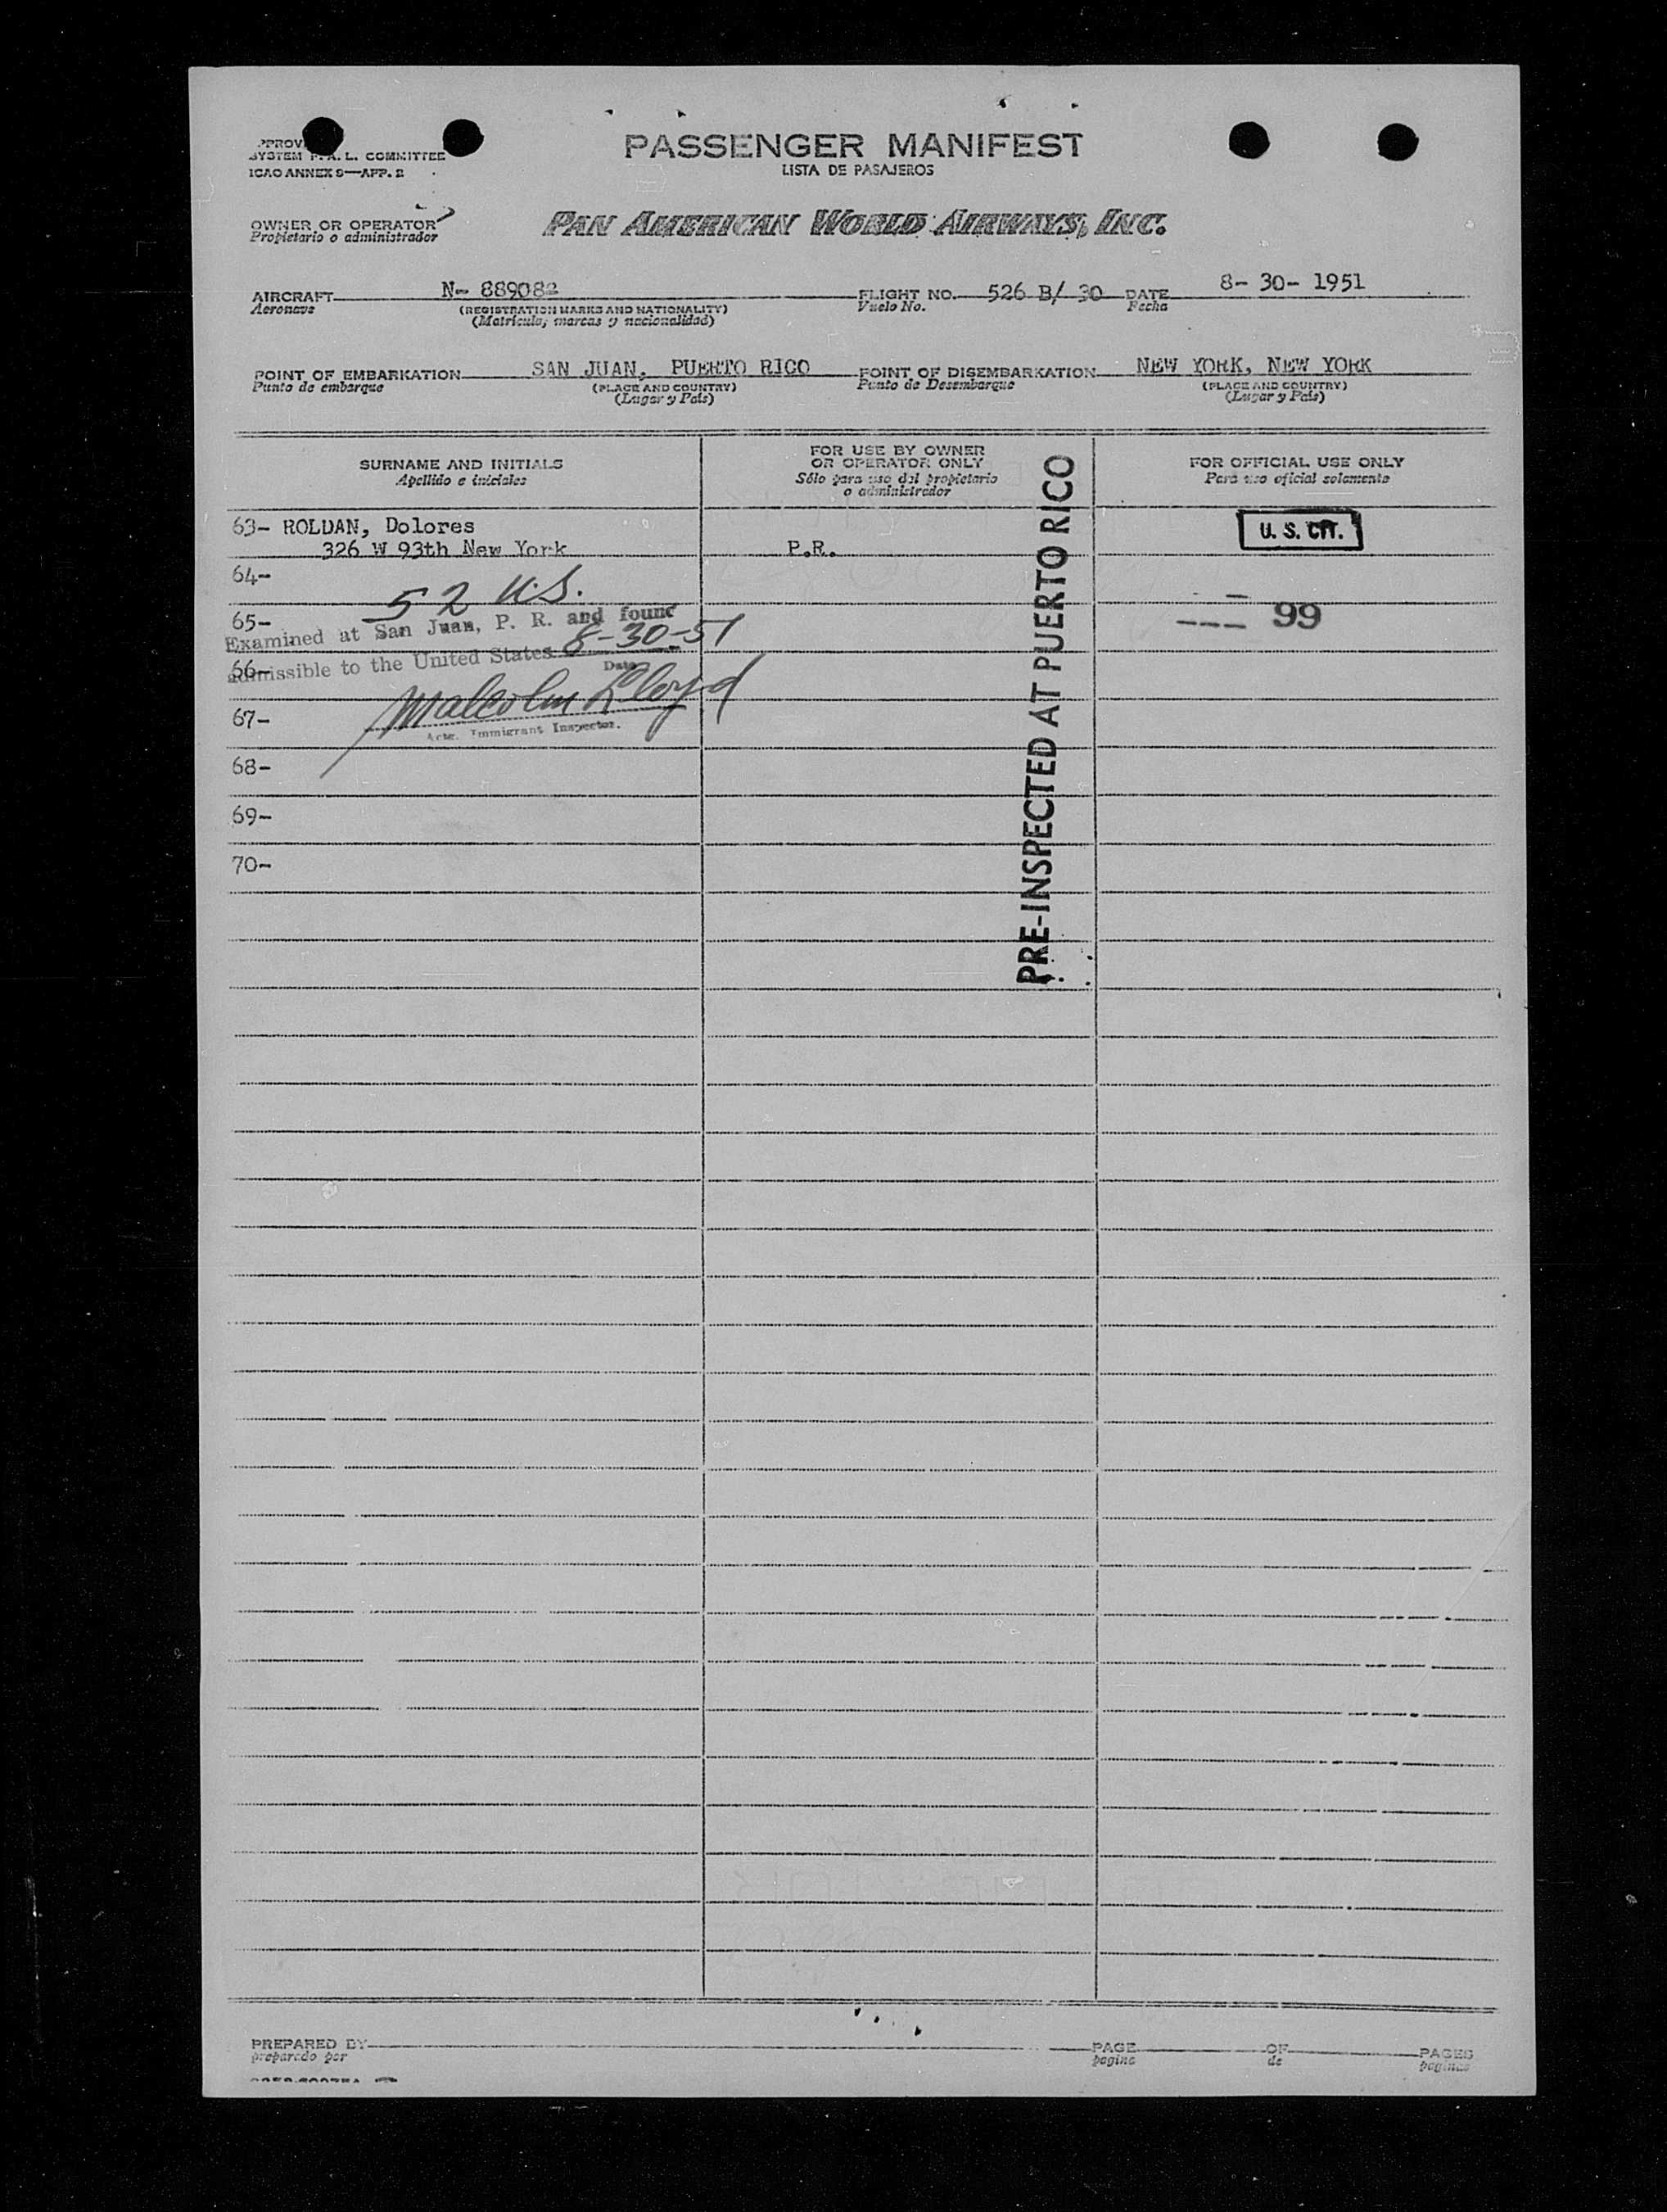 PASSENGER MANIFEST
LISTA DE PASAJEROS
SYSTEM F. A. L. COMMITTEE
ICAO ANNEX 9—APP. 2
OWNER OR OPERATOR
Propietario o administrador
PAN AMERICAN WORLD AIRWAYS, INC.
AIRCRAFT N- 889082 FLIGHT NO. 526 B/ 30 DATE 8- 30- 1951
Aeronave (REGISTRATION MARKS AND NATIONALITY) Vuelo No. Fecha
(Matrícula, marcas y nacionalidad)
POINT OF EMBARKATION SAN JUAN, PUERTO RICO POINT OF DISEMBARKATION NEW YORK, NEW YORK
Punto de embarque (PLACE AND COUNTRY) Punto de Desembarque (PLACE AND COUNTRY)
(Lugar y País) (Lugar y País)
SURNAME AND INITIALS
Apellido e iniciales
FOR USE BY OWNER
OR OPERATOR ONLY
Sólo para uso del propietario
o administrador
FOR OFFICIAL USE ONLY
Para uso oficial solamente
63- ROLDAN, Dolores
326 W 93th New York P.R.
U. S. CIT.
64-
52 U.S.
65-
99
Examined at San Juan, P. R. and found
admissible to the United States 8-30-51
Date
66-
Malcolm Lloyd
67-
Actg. Immigrant Inspector.
68-
69-
70-
PRE-INSPECTED AT PUERTO RICO
PREPARED BY PAGE OF PAGES
preparado por pagina de paginas